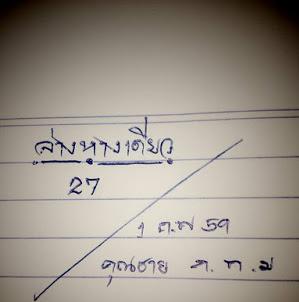 ล่างหางเดียว
27
1 ต.ค 59
คุณชาย ก.ท.ม